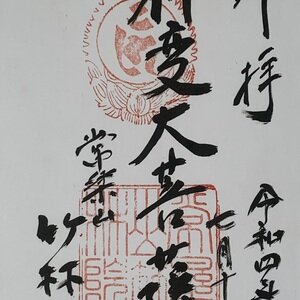 奉拝
令和四年
七月十
神変大菩薩
常楽山
竹林